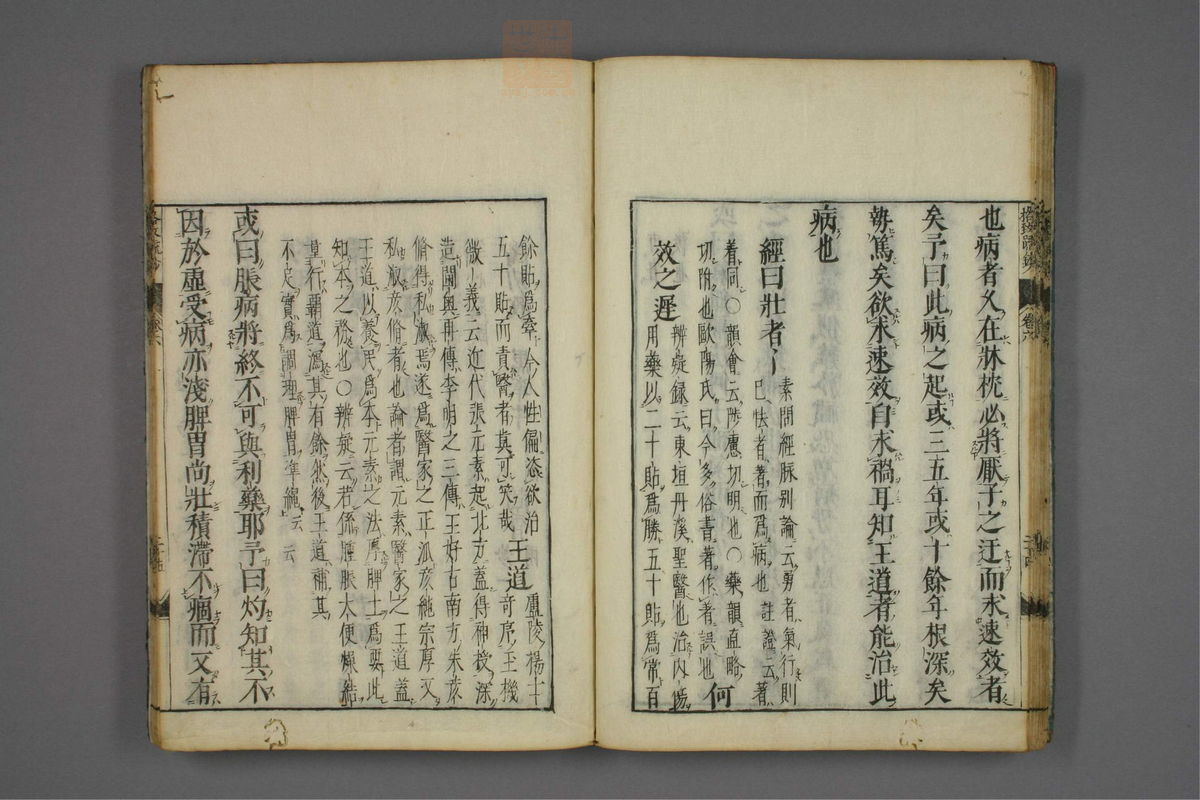 也病者久在牀枕必將厭子之迂而求速效者
矣予曰此病之起或三五年或十餘年根深矣
勢篤矣欲求速效自求禍耳知王道者能治此
病也
經曰壯者〳素問經脉别論云勇者氣行則
已怯者著而爲病也註證云著
着同○韻會云陟慮切明也○藥韻直略
切附也歐陽氏曰今多俗書著作着誤也何
效之遲辨疑録云東垣丹溪聖醫也治内傷
用藥以二十貼爲勝五十貼爲常百
餘貼爲率今人性偏恣欲治
五十貼而責醫者其可笑哉王道盧陵楊士
奇序玉機
微〳義云近代張元素起北方蓋得神授深
造閫奥再傳李明之三傳王好古南方朱彦
脩得私淑焉遂爲醫家之正派彦純宗厚又
私淑彦脩者也論者謂元素醫家之王道蓋
王道以養民爲本元素之法厚脾土爲要此
知本之務也○辨疑云若係腫脹大便燥結
當行覇道瀉其有餘然後王道補其
不足實爲調理脾胃準繩云云
或曰脹病將終不可與利藥耶予曰灼知其不
因於虚受病亦淺脾胃尚壯積滯不痼而又有